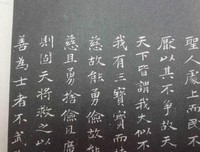 聖人處上而民不
厭以其不爭故天
天下皆謂我大似不
我有三寶寶而
慈故能勇儉故能
慈且勇捨儉且
則固天將救之以
善為士者不武